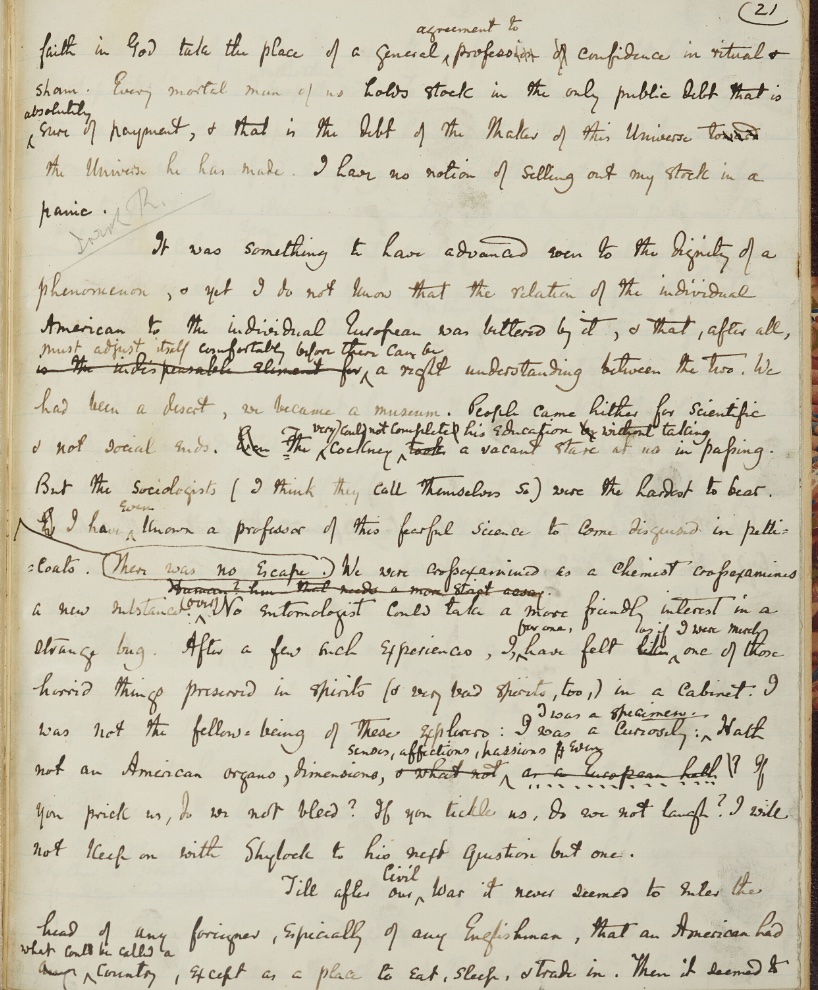 (21
agreement to
faith in God take the place of a general profession of confidence in ritual &
sham. Every mortal man of us holds stock in the only public debt that is
absolutely
sure of payment, & that is the debt of the Maker of this Universe toward
the Universe he has made. I have no notion of selling out my stock in a
panic.
It was something to have advanced even to the dignity of a
phenomenon, & yet I do not know that the relation of the individual
American to the individual European was bettered by it, & that, after all,
must adjust itself comfortably before there can be
is the indispensable element for a right understanding between the two. We
had been a desert, we became a museum. People came hither for scientific
very could not complete his education without taking
& not social ends. Even The Cockney took a vacant stare at us in passing.
But the Sociologists (I think they call themselves so) were the hardest to bear.
Even
I have known a professor of this fearful science to come disguised in petti=
=coats. (There was no Escape.) We were crossexamined as a chemist crossexamines
Human? him that needs a more strict assay.
a new substance. No entomologist could take a more friendly interest in a
for one, as if I were merely
strange bug. After a few such experiences, I, have felt like one of those
horrid things preserved in spirits (& very bad spirits, too,) in a cabinet. I
I was a specimen.
was not the fellow-being of these explorers: I was a Curiosity: Hath
senses, affections, passions even
not an American organs, dimensions, & what not as a European hath? If
you prick us, do we not bleed? If you tickle us, do we not laugh? I will
not keep on with Shylock to his next question but one.
Civil
Till after our War it never seemed to enter the
head of any foreigner, especially of any Englishman, that an American had
what could be called a
any country, except as a place to eat, sleep, & trade in. Then it seemed to